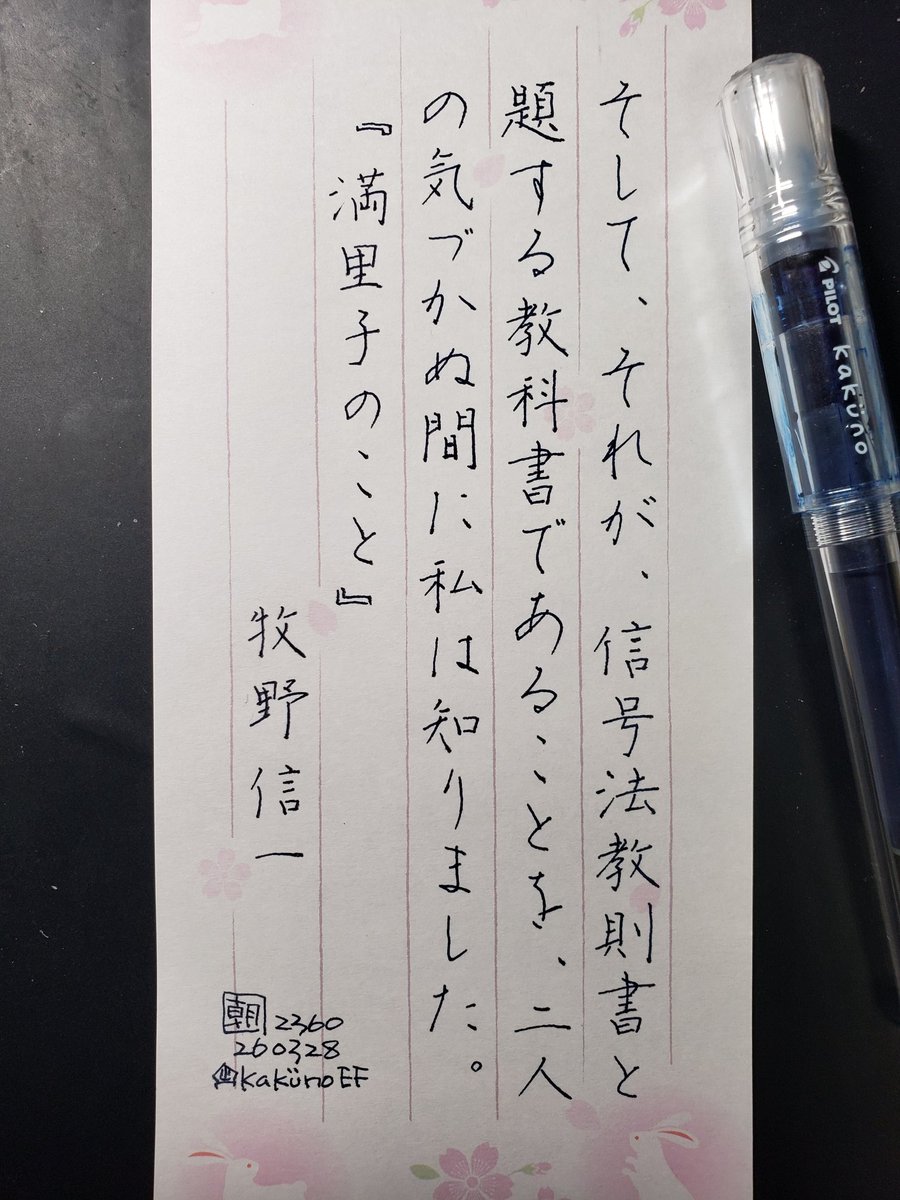 そして、それが、信号法教則書と
題する教科書であることを、二人
の気づかぬ間に私は知りました。
『満里子のこと』
牧野信一
朝 2360
260328
kakünoEF
PILOT kaküno